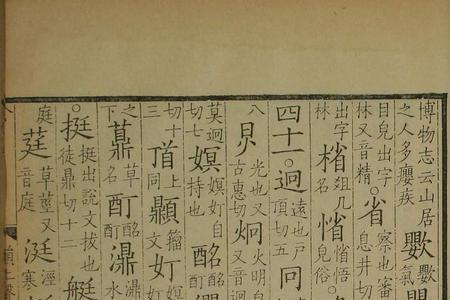 博物志云山居
之人多癭疾
氣
目皃出字
林又音精
省
察也審
息井切
出字
林
㮐
俎几
名
㥠
悟
皃俗
四十一。迥
遠也戶
頂切五
泂
八
炅
光也又
古惠切
炯
火明皃
又音迥
莫迥
切七
嫇
嫇奵自
持也
酩
切十
三
上
同
籀
文
奵
之
下
薡
草
名
酊
酩
酊
濎
。挺
挺出說文拔也
徒鼎切十二
艇
庭
莛
草莖又
音庭
涏
涇
寒